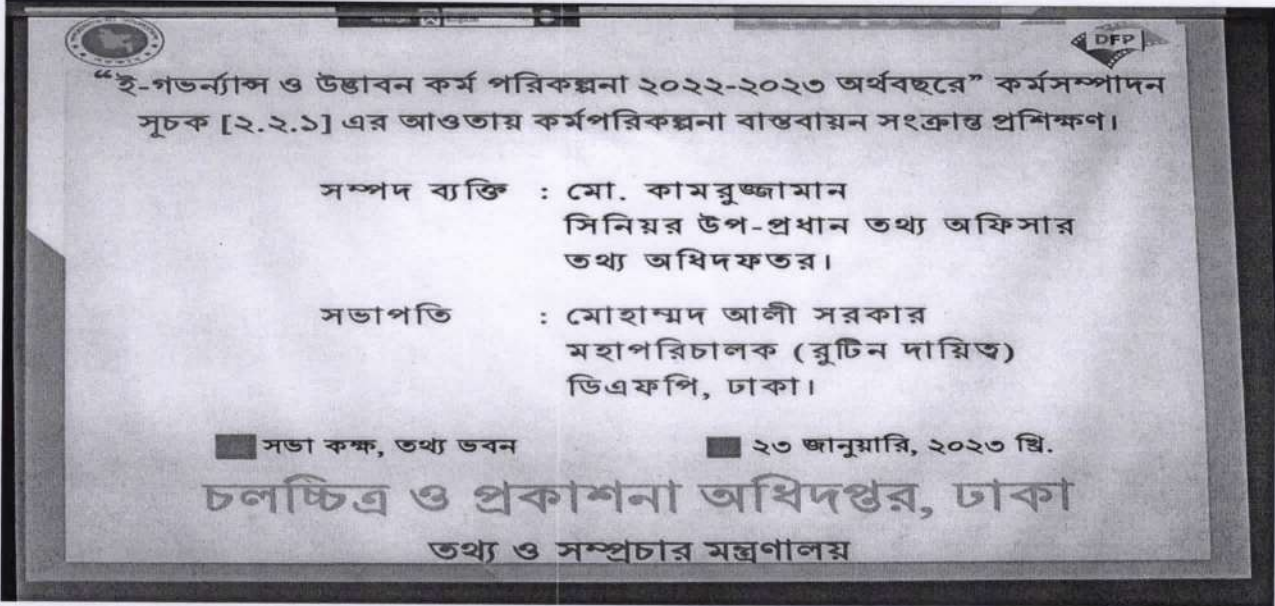 DFP
“ই-গভর্ন্যান্স ও উদ্ভাবন কর্ম পরিকল্পনা ২০২২-২০২৩ অর্থবছরে” কর্মসম্পাদন
সূচক [২.২.১] এর আওতায় কর্মপরিকল্পনা বাস্তবায়ন সংক্রান্ত প্রশিক্ষণ।
সম্পদ ব্যক্তি : মো. কামরুজ্জামান
সিনিয়র উপ-প্রধান তথ্য অফিসার
তথ্য অধিদফতর।
সভাপতি : মোহাম্মদ আলী সরকার
মহাপরিচালক (রুটিন দায়িত্ব)
ডিএফপি, ঢাকা।
সভা কক্ষ, তথ্য ভবন ২৩ জানুয়ারি, ২০২৩ খ্রি.
চলচ্চিত্র ও প্রকাশনা অধিদপ্তর, ঢাকা
তথ্য ও সম্প্রচার মন্ত্রণালয়